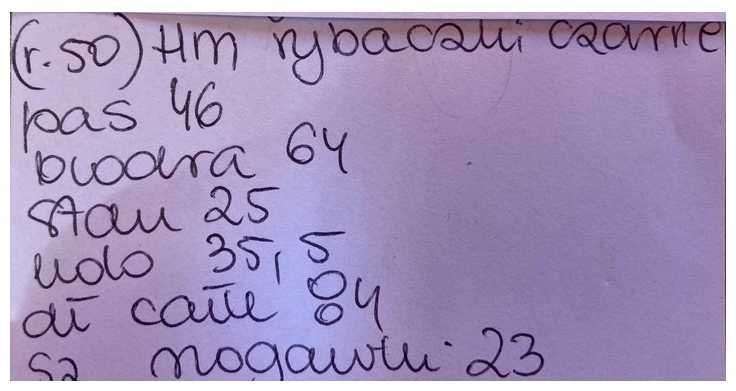 (r.50) HM rybaczki czarne
pas 46
biodra 64
stan 25
udo 35,5
dł całe 84
sz nogawki 23